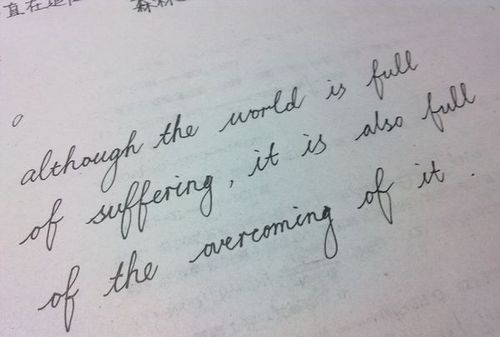 although the world is full
of suffering, it is also full
of the overcoming of it .